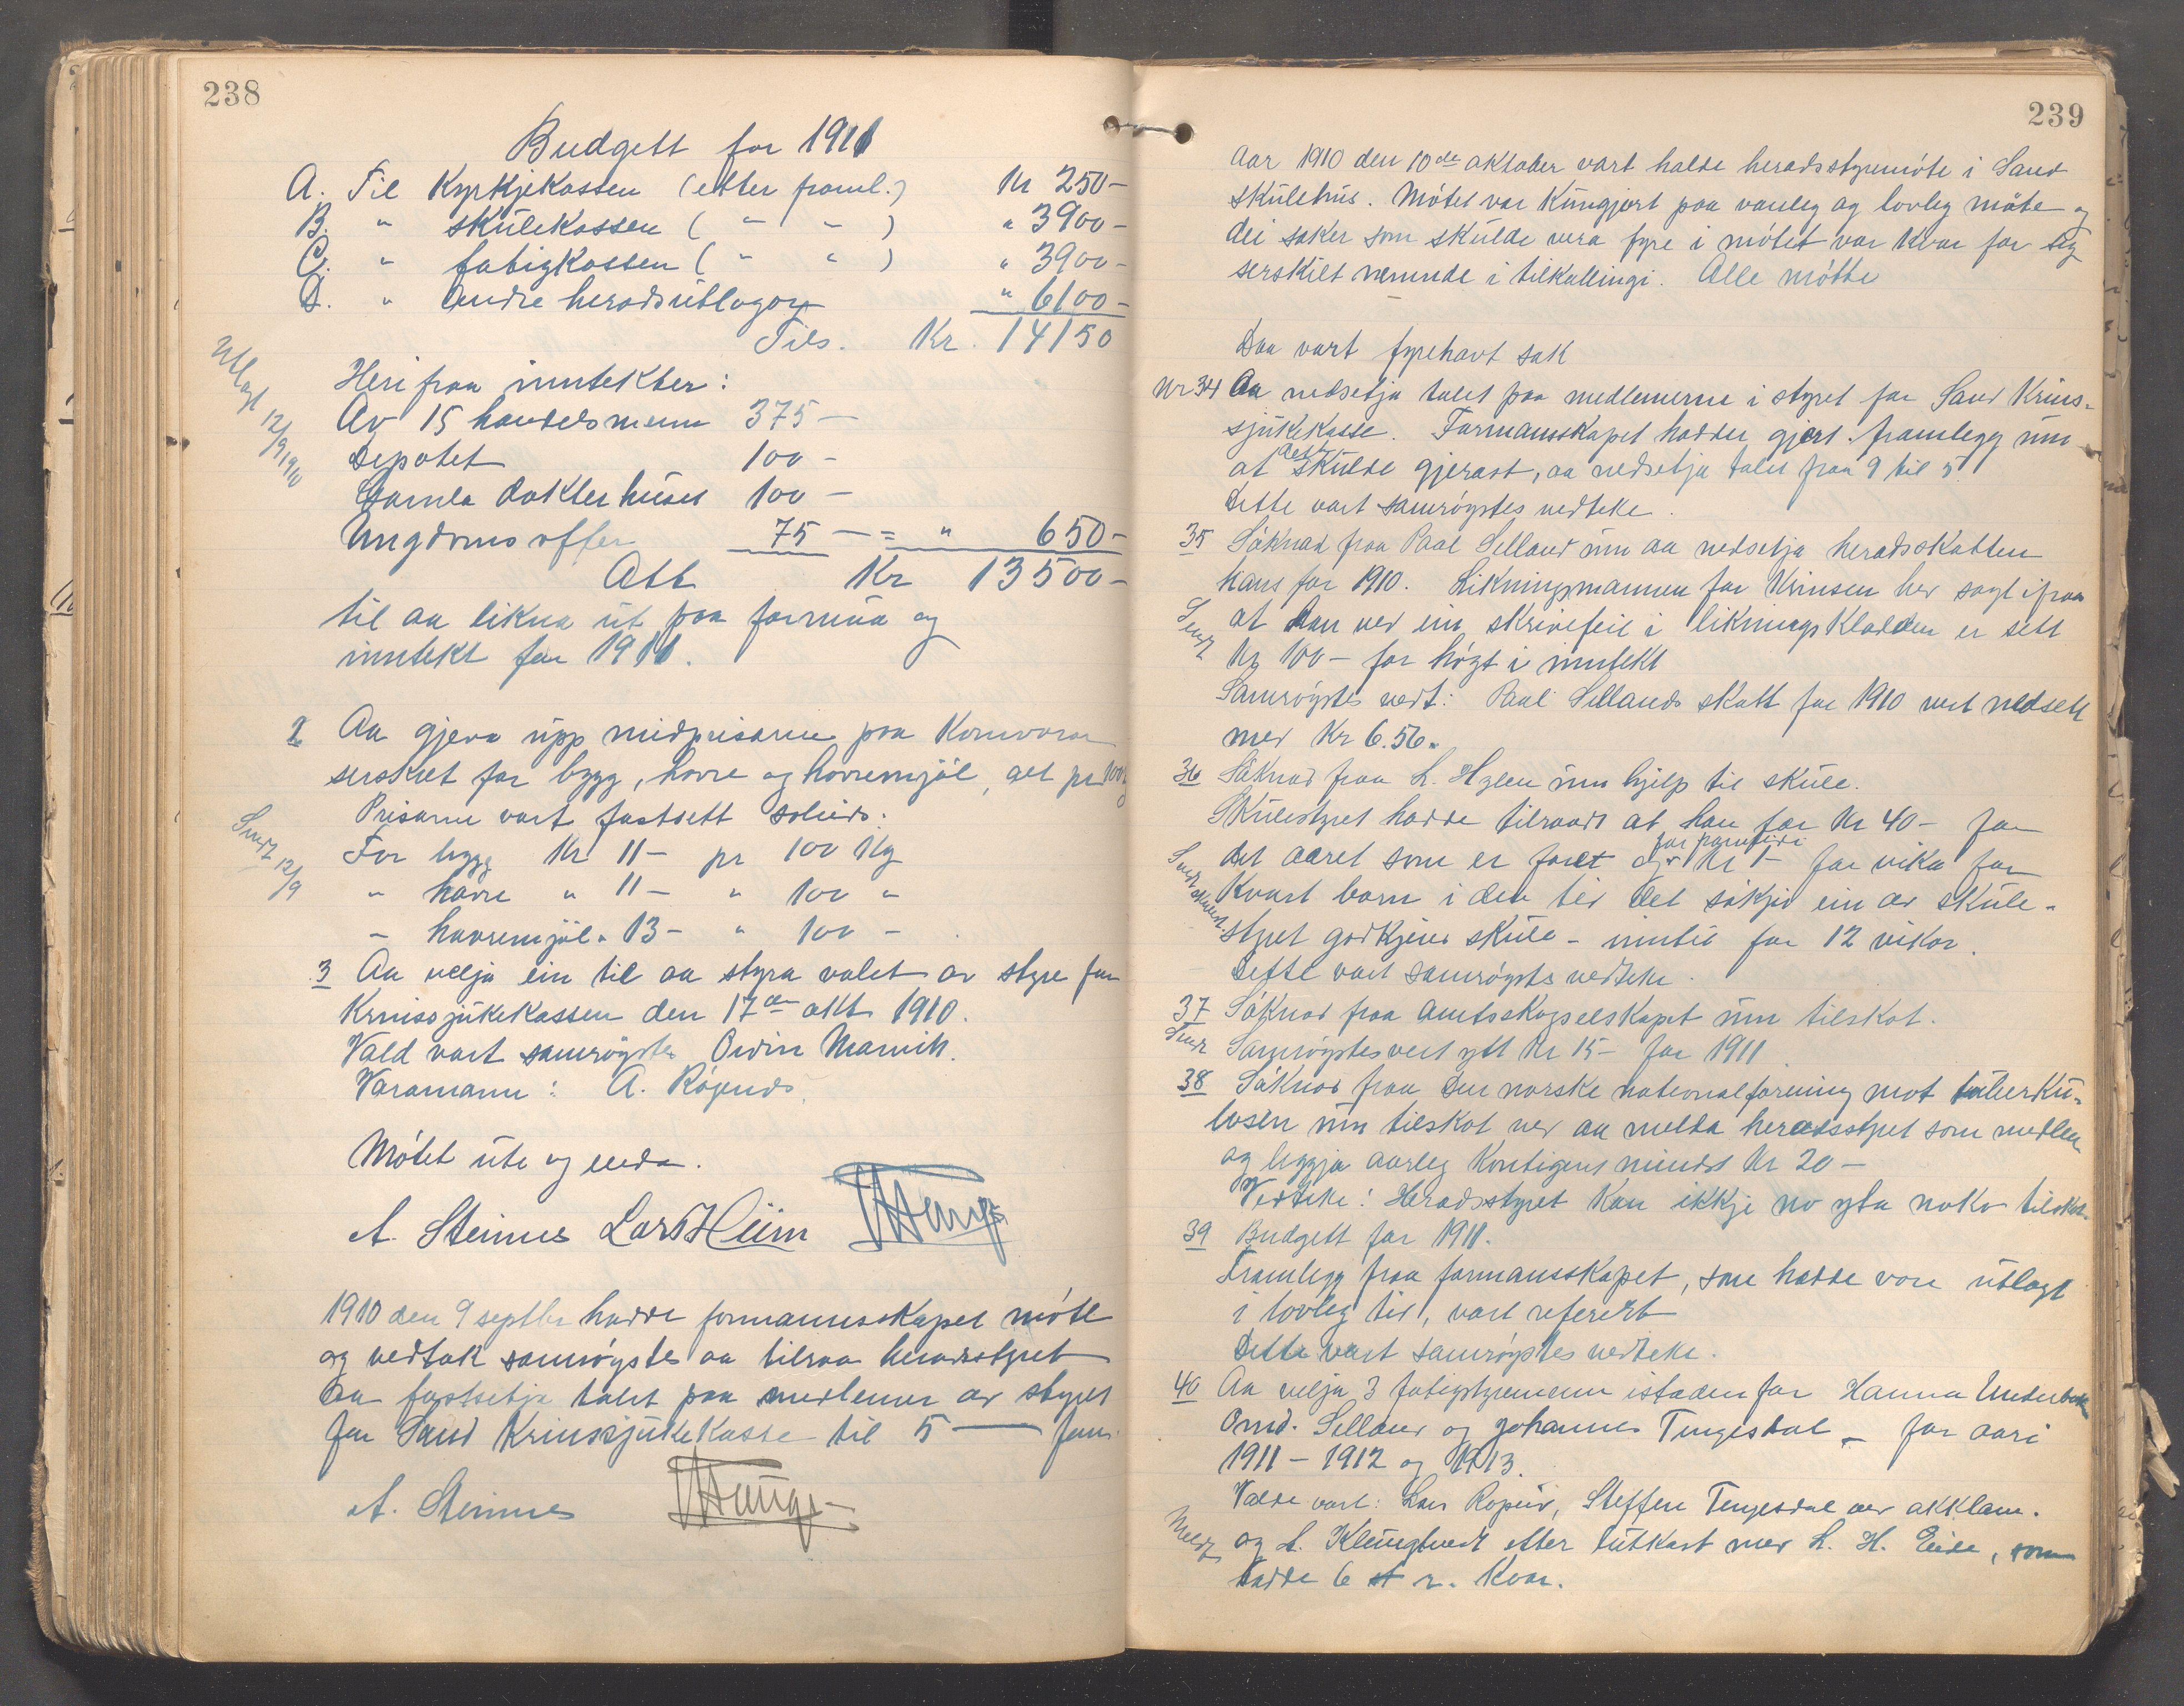 238
Budgett for 1911
A. Til Kyrkjekassen (etter framl.) Kr 250-
B. " skulekassen ( " - ) " 3900-
C. " fatigkassen ( " " ) " 3900-
D. " Andre heradsutlagor " 6100-
Tils. Kr. 14150
Utlagt 12/9 1910
Herifraa inntekter:
Av 15 handelsmenn 375-
Depotet 100-
Gamla dokterhuset 100-
Ungdomsoffer 75 - = " 650-
Att Kr 13500-
til aa likna ut paa formua og
inntekt for 1911.
2 Aa gjeva upp midprisarne paa Kornvaror
serskilt for bygg, havre og havremjöl, alt pr 100 kg
Prisarne vart fastsett soleids:
Sendt 12/9
For bygg Kr 11- pr 100 Kg
" havre " 11- " 100 "
- havremjöl " 13- " 100 -
3 Aa velja ein til aa styra valet av styre for
Krinssjukekassen den 17de okt 1910.
Vald vart samröystes Ordin Marvik.
Varamann: A. Rögends.
Mótet ute og enda.
A. Steinnes Lars Hiim
1910 den 9 septbr hadde formannsskapet móte
og vedtok samröystes aa tilraa heradsstyret
aa fastsetja talet paa medlemer av styret
for Sand Krinssjukekasse til 5 — fem.
A. Steinnes
239
Aar 1910 den 10de oktober vart halde heradsstyremóte i Sand
skulehus. Mótet var kungjort paa vanleg og lovleg máte og
dei saker som skulde vera fyre i mótet var kvar for seg
serskilt nemnde i tilkallingi. Alle mótte
Daa vart fyrehavt sak
Nr 34 Aa nedsetja talet paa medlemerne i styret for Sand Krins-
sjukekasse. Formannsskapet hadde gjort framlegg um
at det skulde gjerast, aa nedsetja talet fraa 9 til 5.
Dette vart samröystes vedteke.
35 Söknad fraa Paal Selland um aa nedsetja heradsskatten
hans for 1910. Likningsmannen for Krinsen hev sagt ifraa
Sendt at han ved ein skrivefeil i likningskladden er sett
Kr 100- for högt i inntekt
Samröystes vedt: Paal Sellands skatt for 1910 vert nedsett
med Kr 6.56.
36 Söknad fraa L. Hylen um hjelp til skule.
Skulestyret hadde tilraadt at han faar Kr 40- for
det aaret som er faret og for framtidi Kr 1- for vika for
Kvart barn i den tid det sökjer ein av skule-
styret godkjend skule - inntil for 12 vikor.
Dette vart samröystes vedteke.
37 Söknad fraa Amtsskogselskapet um tilskot.
Sendt Samröystes vert ytt Kr 15- for 1911.
38 Söknad fraa Den norske nationalforening mot tuberku-
losen um tilskot ved aa melda heradsstyret som medlem
og leggja aarleg Kontigent mindst Kr 20-
Vedteke: Heradsstyret kan ikkje no yta noko tilskot.
39 Budgett for 1911.
Framlegg fraa formannsskapet, som hadde vore utlagt
i lovleg tid, vart referert
Dette vart samröystes vedteke.
40 Aa velja 3 fatigstyremenn istadenfor Hanna Underbakke
Omd. Selland og Johannes Tengesdal - for aari
1911 - 1912 og 1913.
Valde vart: Lars Ropeid, Steffen Tengesdal ved akklam.
Meldt og A. Klungtvedt etter lutkast med L. H. Eide, som
hadde 6 r. kvar.